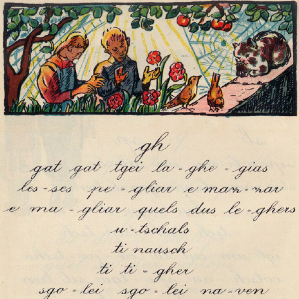 gh
gat gat tgei la-ghe-gias
les-ses pe-gliar e maz-zar
e ma-gliar quels dus le-ghers
u-tschals
ti nausch
ti ti-gher
sgo-lei sgo-lei na-ven